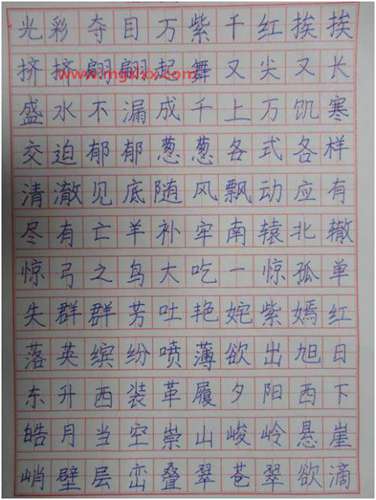 光彩夺目万紫千红挨挨
挤挤翩翩起舞又尖又长
盛水不漏成千上万饥寒
交迫郁郁葱葱各式各样
清澈见底随风飘动应有
尽有亡羊补牢南辕北辙
惊弓之鸟大吃一惊孤单
失群群芳吐艳姹紫嫣红
落英缤纷喷薄欲出旭日
东升西装革履夕阳西下
皓月当空崇山峻岭悬崖
峭壁层峦叠翠苍翠欲滴